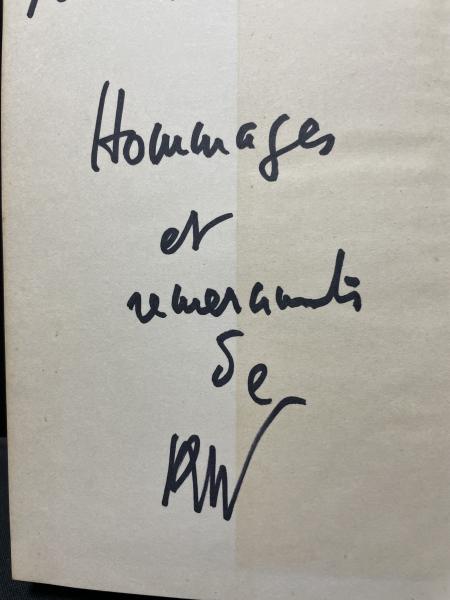 Hommages
et
remerciements
de